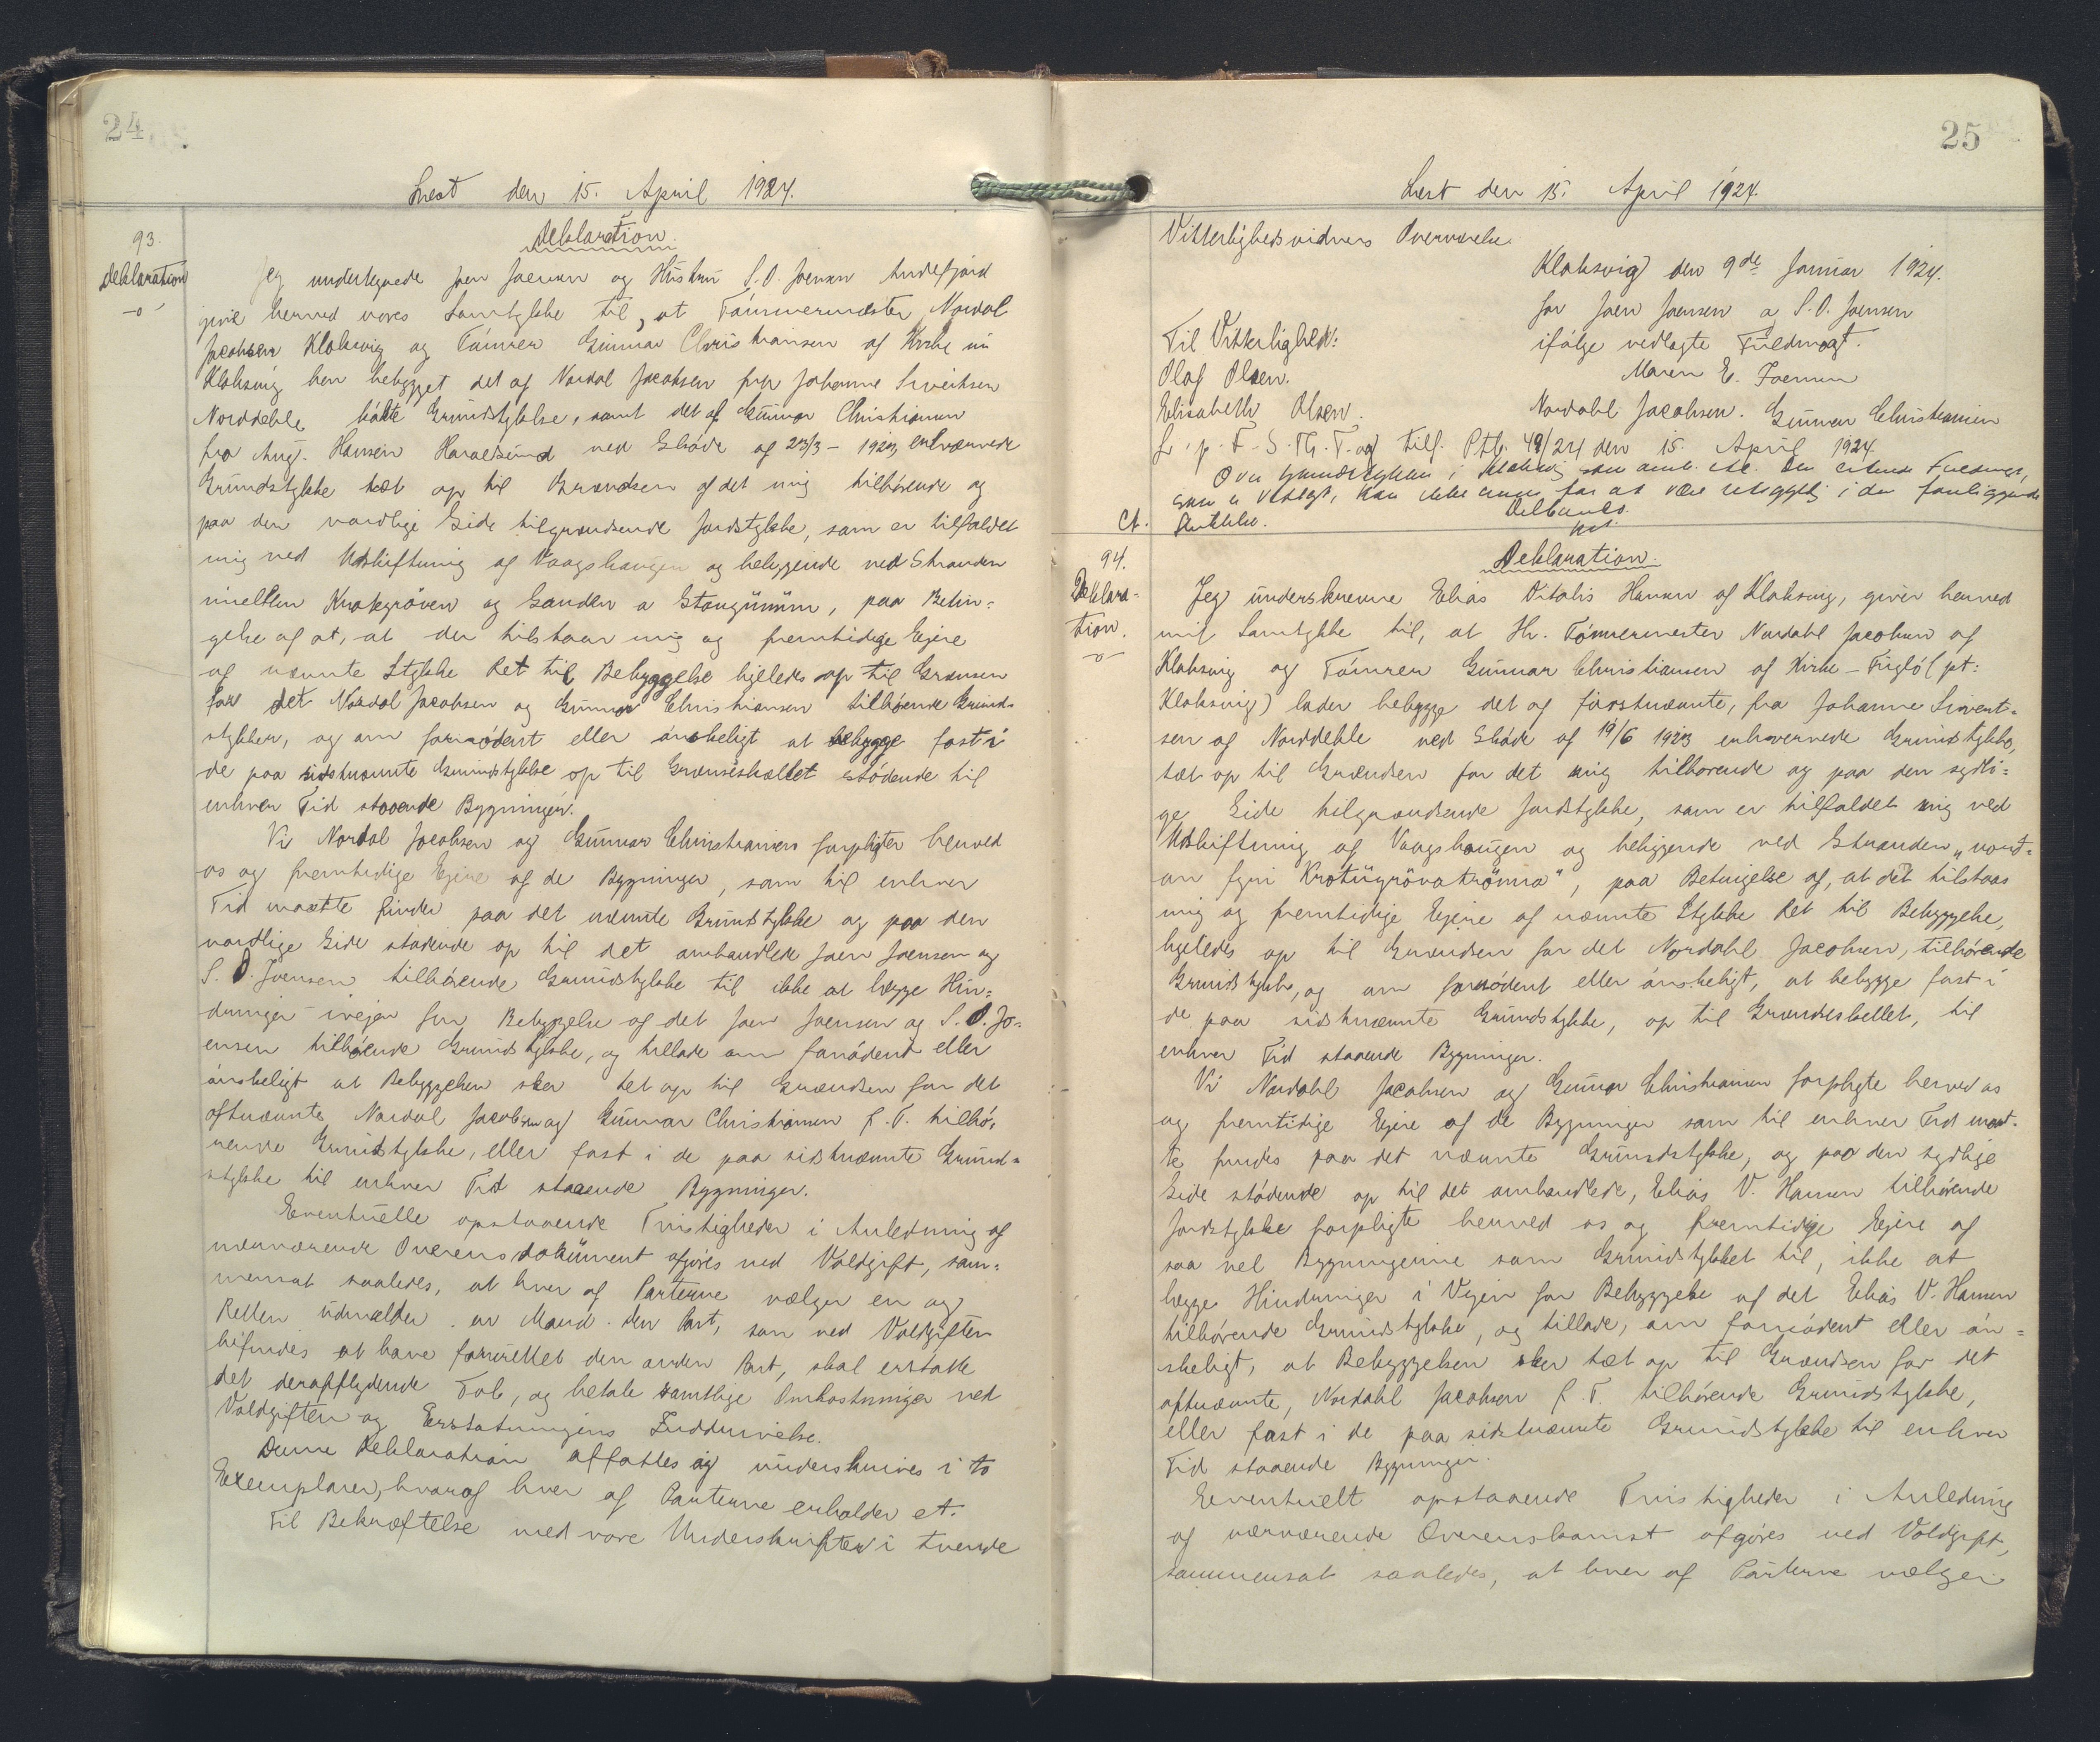 24
Læst den 15. April 1924.
93.
Deklaration
-o-
Deklaration.
Jeg undertegnede Joen Joensen og Hustru S. O. Joensen Andefjord
giver herved vores Samtykke til, at Tømmermester Nordal
Jacobsen Klaksvig og Tømrer Gunnar Christiansen af Kirke nu
Klaksvig har bebygget det af Nordal Jacobsen fra Johanne Sivertsen
Norddeble købte Grundstykke, samt det af Gunnar Christiansen
fra Aug. Hansen Haraldsund ved Skøde af 23/3 - 1923, erhvervede
Grundstykke tæt op til Grændsen af det mig tilhørende og
paa den nordlige Side tilgrændsende Jordstykke, som er tilfaldet
mig ved Udskiftning af Vaagshaugen og beliggende ved Stranden
imellem Krotugrøven og Sanden a Stangunum, paa Betin=
gelse af at, at der tilstaar mig og fremtidige Ejere
af nævnte Stykke Ret til Bebyggelse ligeledes op til Grænsen
for det Nordal Jacobsen og Gunnar Christiansen tilhørende Grund=
stykker, og om fornødent eller ønskeligt at bebygge fast i
de paa sidstnævnte Grundstykke op til Grænseskellet stødende til
enhver Tid staaende Bygninger.
Vi Nordal Jacobsen og Gunnar Christiansen forpligter herved
os og fremtidige Ejere af de Bygninger, som til enhver
Tid maatte findes paa det nævnte Grundstykke og paa den
nordlige Side stødende op til det omhandlede Joen Joensen og
S. O. Joensen tilhørende Grundstykke til ikke at lægge Hin=
dringer ivejen for Bebyggelse af det Joen Joensen og S. O. Jo=
ensen tilhørende Grundstykke, og tillade om fornødent eller
ønskeligt at Bebyggelsen sker tet op til Grændsen for det
oftnævnte Nordal Jacobsen og Gunnar Christiansen f. T. tilhø=
rende Grundstykke, eller fast i de paa sidstnævnte Grund=
stykke til enhver Tid staaende Bygninger.
Eventuelle opstaaende Tvistigheder i Anledning af
nærværende Overensdokument afgøres ved Voldgift, sam=
mensat saaledes, at hver af Parterne vælger en og
Retten udmelder en Mand. Den Part, som ved Voldgiften
befindes at have forurettet den anden Part, skal erstatte
det deraf flydende Tab, og betale samtlige Omkostninger ved
Voldgiften og Erstatningens Inddrivelse.
Denne Deklaration affattes og underskrives i to
Exemplarer, hvoraf hver af Parterne erholder et.
Til Bekræftelse med vore Underskrifter i tvende
25
Læst den 15. April 1924.
Vitterlighedsvidners Overværelse.
Klaksvig den 9de Januar 1924.
for Joen Joensen a S. O. Joensen
Til Vitterlighed: ifølge vedlagte Fuldmagt.
Olaf Olsen. Maren E. Joensen
Elisabeth Olsen. Nordahl Jacobsen. Gunnar Christiansen
L. p. F. S. Th. T. og Tilf. Ptb. 49/24 den 15. April 1924
Ct.
94.
Deklara-
tion.
-o-
Deklaration.
Jeg underskrevne Elias Vitalis Hansen af Klaksvig, giver herved
mit Samtykke til, at Hr. Tømmermester Nordahl Jacobsen af
Klaksvig og Tømrer Gunnar Christiansen af Kirke - Fuglø (pt:
Klaksvig) lader bebygge det af førstnævnte, fra Johanne Sivert=
sen af Norddeble ved Skøde af 19/6 1923 erhvervede Grundstykke,
tæt op til Grændsen for det mig tilhørende og paa den sydli=
ge Side tilgrændsende Jordstykke, som er tilfaldet mig ved
Udskiftning af Vaagshaugen og beliggende ved Stranden „nord=
an fyri Krotugrøvatrømma", paa Betingelse af, at det tilstaas
mig og fremtidige Ejere af nævnte Stykke Ret til Bebyggelse,
ligeledes op til Grændsen for det Nordahl Jacobsen, tilhørende
Grundstykke, og om fornødent eller ønskeligt, at bebygge fast i
de paa sidstnævnte Grundstykke, op til Grændeskellet, til
enhver Tid staaende Bygninger.
Vi Nordahl Jacobsen og Gunnar Christiansen forpligte herved os
og fremtidige Ejere af de Bygninger som til enhver Tid maat=
te findes paa det nævnte Grundstykke, og paa den sydlige
Side stødende op til det omhandlede, Elias V. Hansen tilhørende
Jordstykke forpligte herved os og fremtidige Ejere af
saa vel Bygningerne som Grundstykket til, ikke at
lægge Hindringer i Vejen for Bebyggelse af det Elias V. Hansen
tilhørende Grundstykke, og tillade, om fornødent eller øn=
skeligt, at Bebyggelsen sker tæt op til Grændsen for det
oftnævnte, Nordahl Jacobsen f. T. tilhørende Grundstykke,
eller fast i de paa sidstnævnte Grundstykke til enhver
Tid staaende Bygninger.
Eventuelt opstaaende Tvistigheder i Anledning
af nærværende Overenskomst afgøres ved Voldgift,
sammensat saaledes, at hver af Parterne vælger